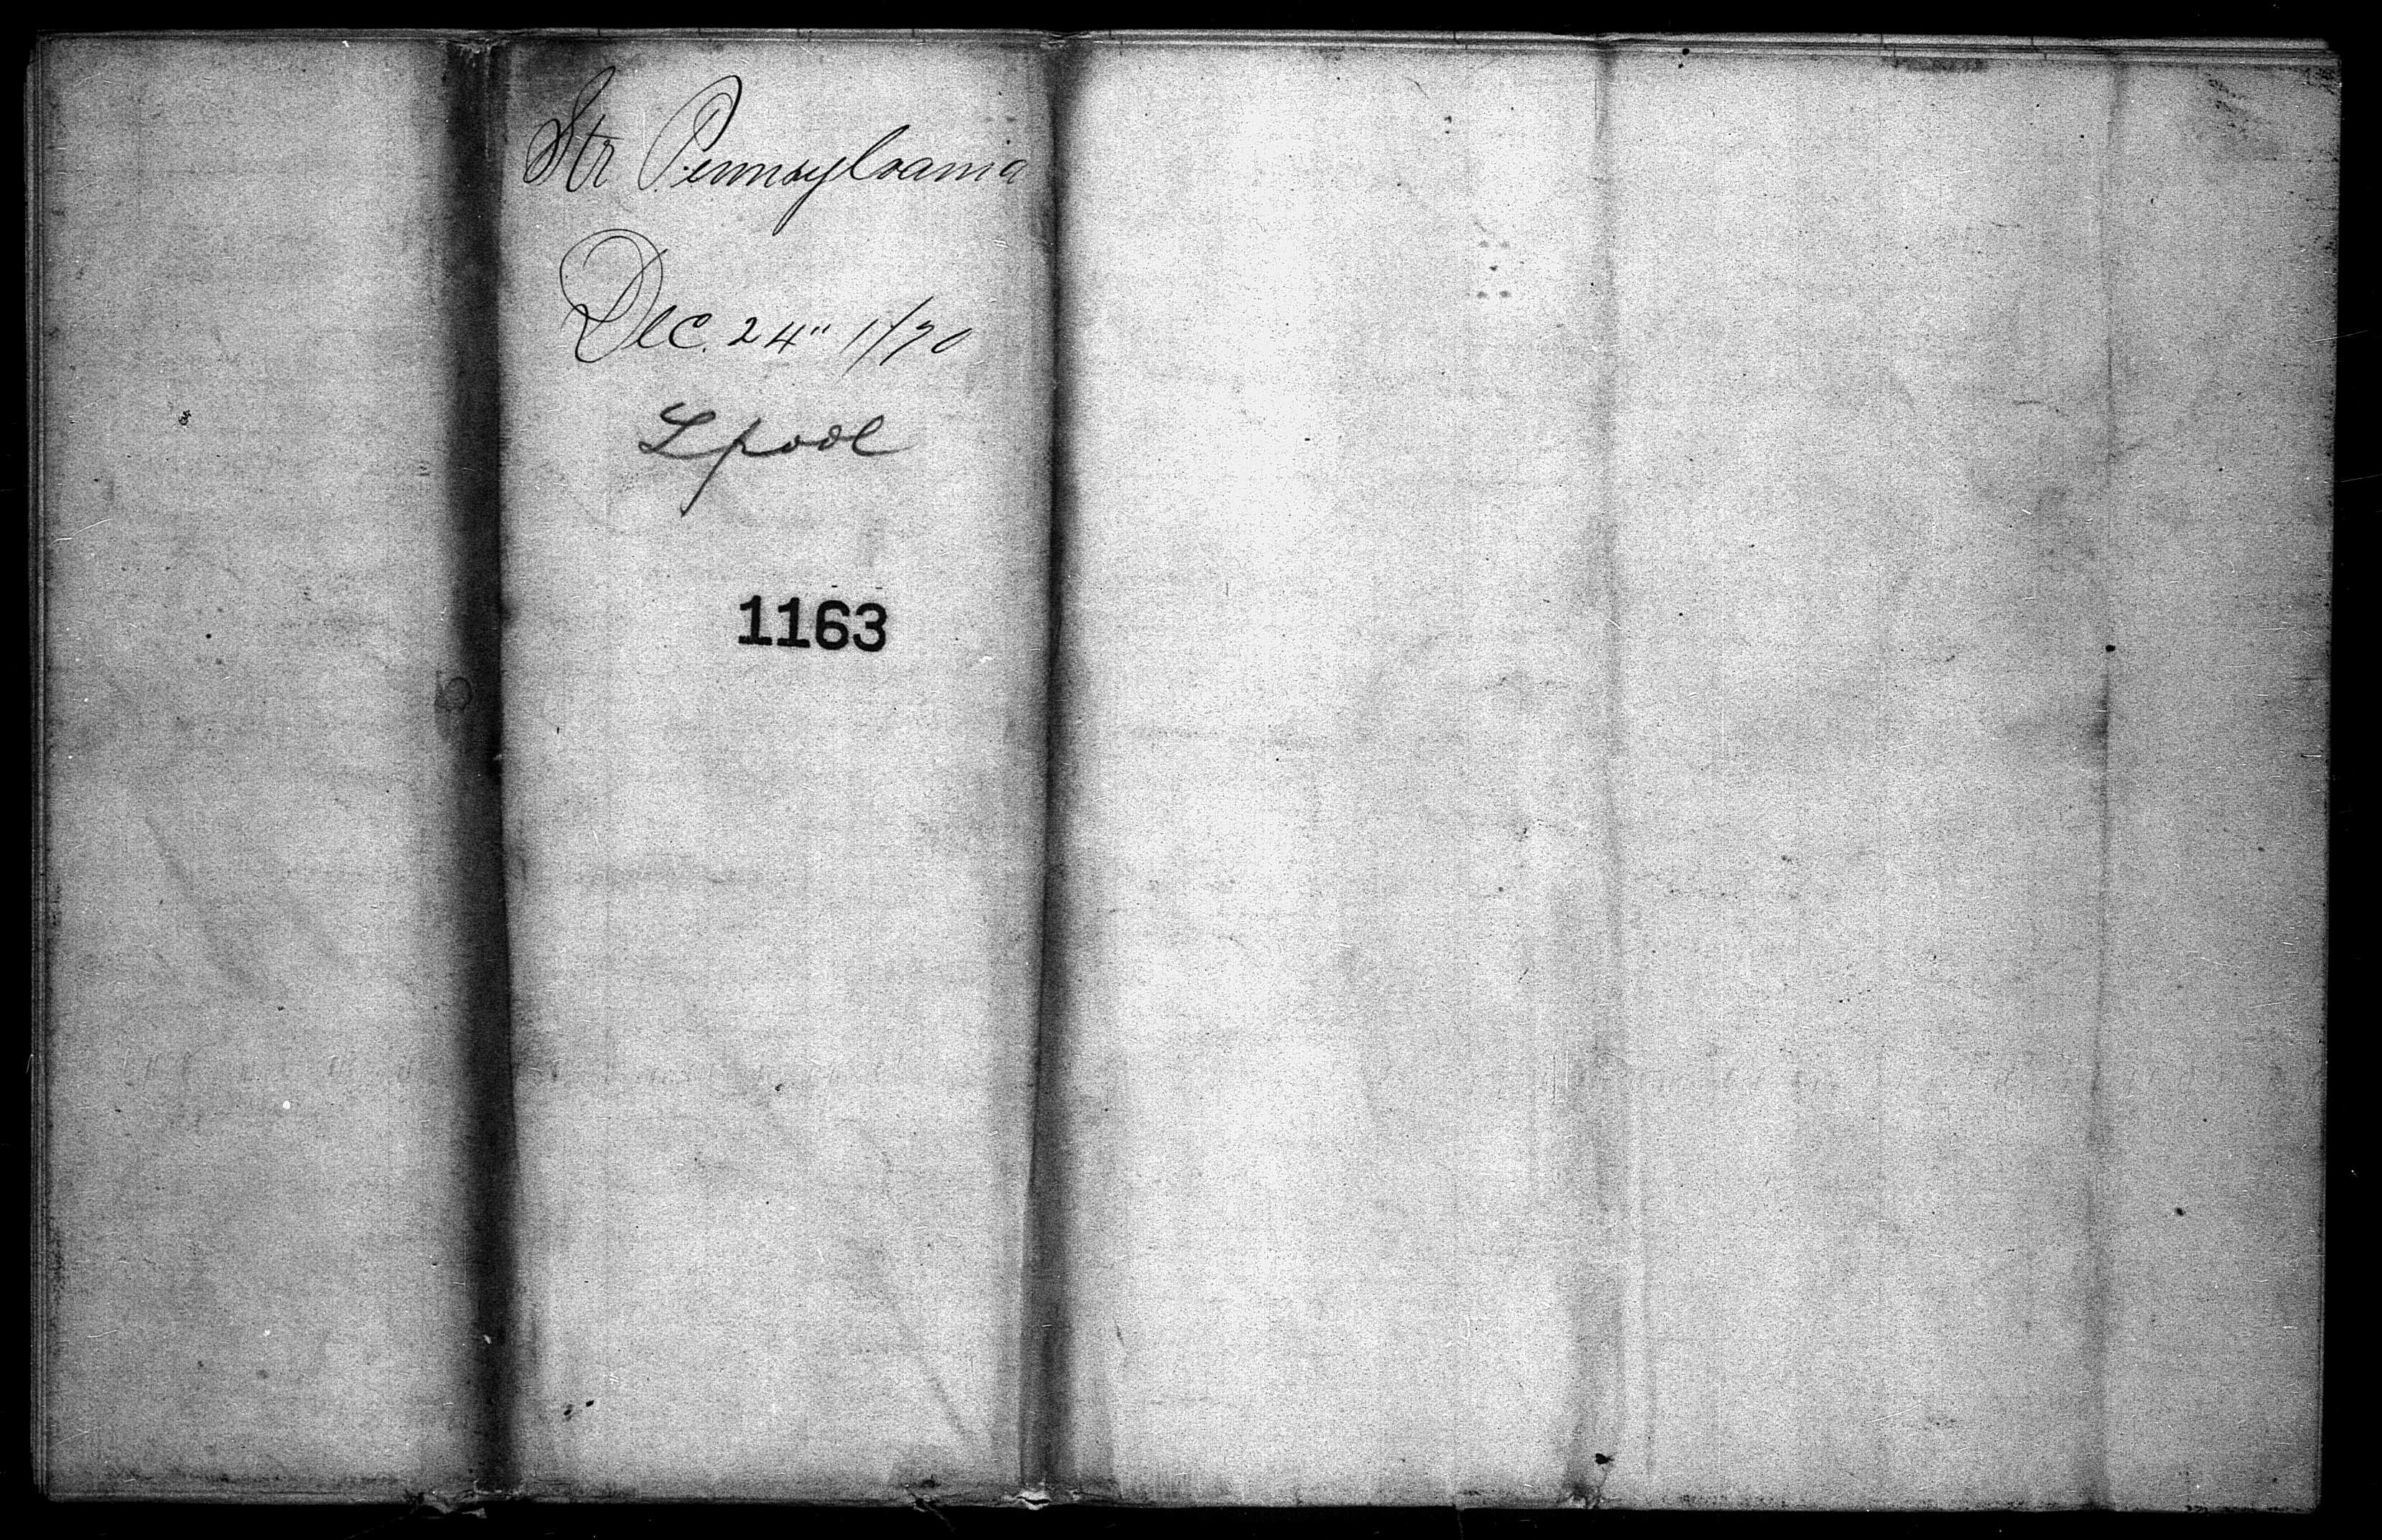 Str Pennsylvania
Dec. 24" 1/70
Lpool
1163